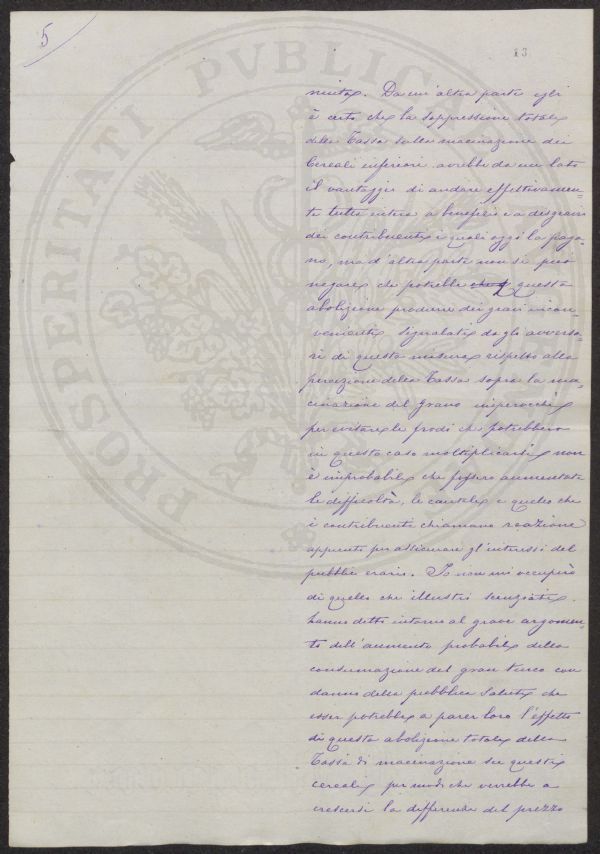 5
13
PROSPERITATI PVBLICAE
Da un'altra parte egli
è certo che la soppressione totale
della Tassa sulla macinazione dei
Cereali inferiori avrebbe da un lato
il vantaggio di andare effettivamen-
te tutta intera a beneficio e a disgravio
dei contribuenti i quali oggi la paga-
no, ma d'altra parte non si può
negare che potrebbe che questa
abolizione produrre dei gravi incon-
venienti segnalati dagli avversa-
ri di questa misura rispetto alla
percezione della Tassa sopra la ma-
cinazione del grano imperocchè
per evitare le frodi che potrebbero
in questo caso moltiplicarsi non
è improbabile che fossero aumentate
le difficoltà, le cautele e quello che
i contribuenti chiamano
appunto per assicurare gl'interessi del
pubblico erario. Io non mi occuperò
di quello che illustri scienziati
hanno detto intorno al grave argomen-
to dell'aumento probabile della
consumazione del gran turco con
danno della pubblica salute che
esser potrebbe a parer loro l'effetto
di questa abolizione totale della
Tassa di macinazione su questi
cereali per modo che verrebbe a
crescersi la differenza del prezzo